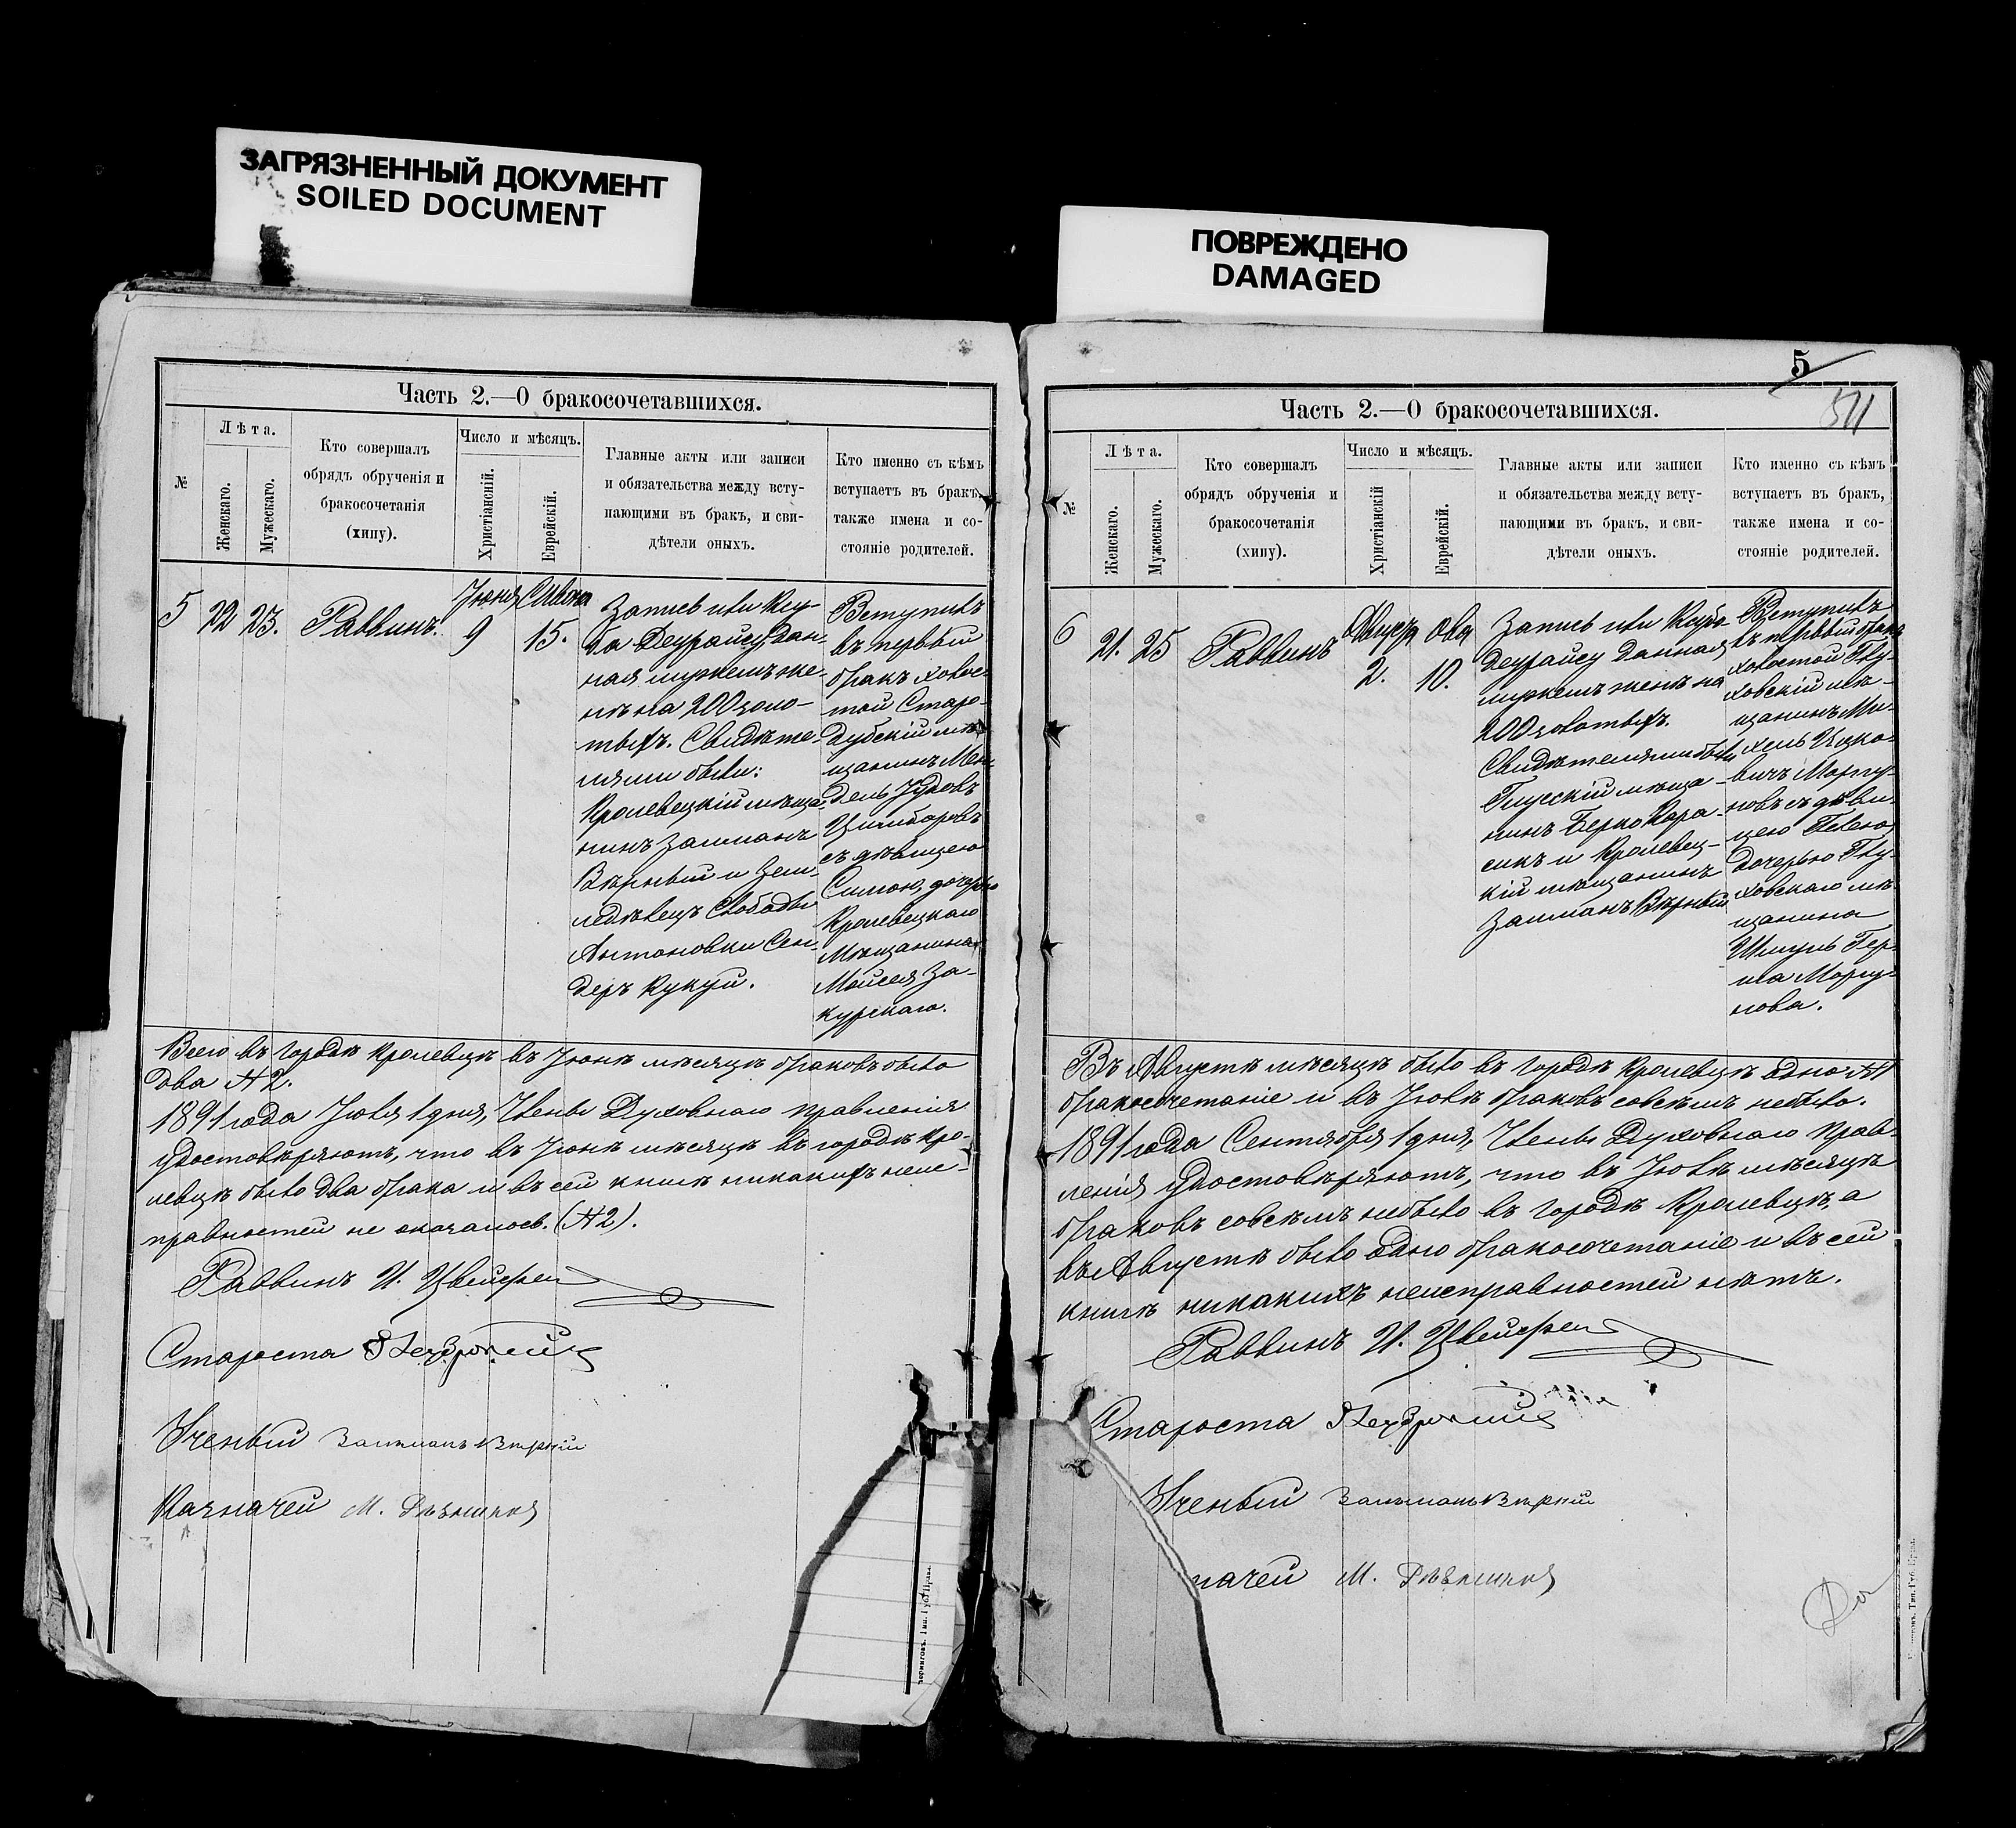 ЗАГРЯЗНЕННЫЙ ДОКУМЕНТ
SOILED DOCUMENT
ПОВРЕЖДЕНО
DAMAGED
Часть 2.—О бракосочетавшихся.
№
Лѣта.
Женскаго.
Мужескаго.
Кто совершалъ
обрядъ обрученія и
бракосочетанія
(хипу).
Число и мѣсяцъ.
Христіанскій.
Еврейскій.
Главные акты или записи
и обязательства между всту-
пающими въ бракъ, и сви-
дѣтели оныхъ.
Кто именно съ кѣмъ
вступаетъ въ бракъ,
также имена и со-
стояніе родителей.
5
22
23.
Раввинъ.
Іюня
9
Сивона
15.
Запись или Ксу-
ба Деурайсу, дан-
ная мужемъ же-
нѣ на 200 золо-
тыхъ. Свидѣте-
лями были:
Кролевецкій мѣща-
нинъ Залманъ
Вѣрный и Зем-
ледѣлецъ Слободы
Антоновки Сен-
деръ Кукуй.
Вступилъ
въ первый
бракъ холос-
той Старо-
дубскій мѣ-
щанинъ Мен-
дель Юдовъ
Цимбаровъ
съ дѣвицею
Симою, дочерью
Кролевецкаго
Мѣщанина
Мойсея За-
курскаго.
Всего въ городѣ Кролевцѣ въ Іюнѣ мѣсяцѣ браковъ было
два №2.
1891 года Іюля 1 дня, Члены Духовнаго правленія
удостовѣряютъ, что въ Іюнѣ мѣсяцѣ въ городѣ Кро-
левцѣ было два брака и въ сей книгѣ никакихъ неис-
правностей не оказалось. (№2).
Раввинъ И.
Староста
Ученый Зальманъ Вѣрній
Казначей М.
5
511
Часть 2.—О бракосочетавшихся.
№
Лѣта.
Женскаго.
Мужескаго.
Кто совершалъ
обрядъ обрученія и
бракосочетанія
(хипу).
Число и мѣсяцъ.
Христіанскій
Еврейскій.
Главные акты или записи
и обязательства между всту-
пающими въ бракъ, и сви-
дѣтели оныхъ.
Кто именно съ кѣмъ
вступаетъ въ бракъ,
также имена и со-
стояніе родителей.
6
21.
25
Раввинъ
Августа
2.
Ова
10.
Запись или Ксуба
Деурайсу данная
мужемъ женѣ на
200 золотыхъ.
Свидѣтелями были
Глусскій мѣща-
нинъ Берко Кара-
сикъ и Кролевец-
кій мѣщанинъ
Залманъ Вѣрный
Вступилъ
въ первый бракъ
холостой Глу-
ховскій мѣ-
щанинъ Ми-
хель Ицко-
вичъ Моргу-
новъ съ дѣви-
цею
дочерью Глу-
ховскаго мѣ-
щанина
Шмуль Гер-
ша Моргу-
нова.
Въ Августѣ мѣсяцѣ было въ городѣ Кролевцѣ одно №1
бракосочетаніе и въ Іюлѣ браковъ совсѣмъ небыло.
1891 года Сентября 1 дня, Члены Духовнаго Прав-
ленія удостовѣряютъ, что въ Іюлѣ мѣсяцѣ
браковъ совсѣмъ небыло въ городѣ Кролевцѣ, а
въ Августѣ было одно бракосочетаніе и въ сей
книгѣ никакихъ неисправностей нѣтъ.
Раввинъ И.
Староста
Ученый Зальманъ Вѣрній
начей М.